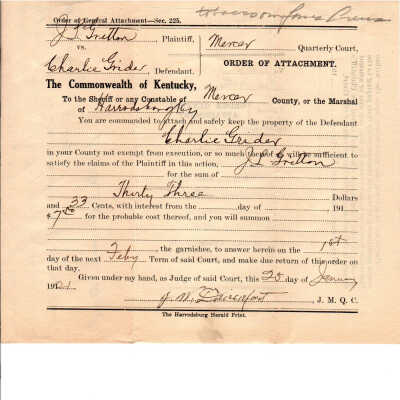 Order of General Attachment—Sec. 225.
J L Gretton Plaintiff, Mercer Quarterly Court,
vs. ORDER OF ATTACHMENT.
Charlie Grider, Defendant.
The Commonwealth of Kentucky,
To the Sheriff or any Constable of Mercer County, or the Marshal
of Harrodsburg Ky
You are commanded to attach and safely keep the property of the Defendant
Charlie Grider
in your County not exempt from execution, or so much thereof as will be sufficient to
satisfy the claims of the Plaintiff in this action, J L Gretton
for the sum of
Thirty Three Dollars
and 33 Cents, with interest from the day of 191
$7.50 for the probable cost thereof, and you will summon
the garnishee, to answer herein on the 1st
day of the next Feby Term of said Court, and make due return of this order on
that day.
Given under my hand, as Judge of said Court, this 20 day of January
191
J. M. Q. C.
The Harrodsburg Herald Print.